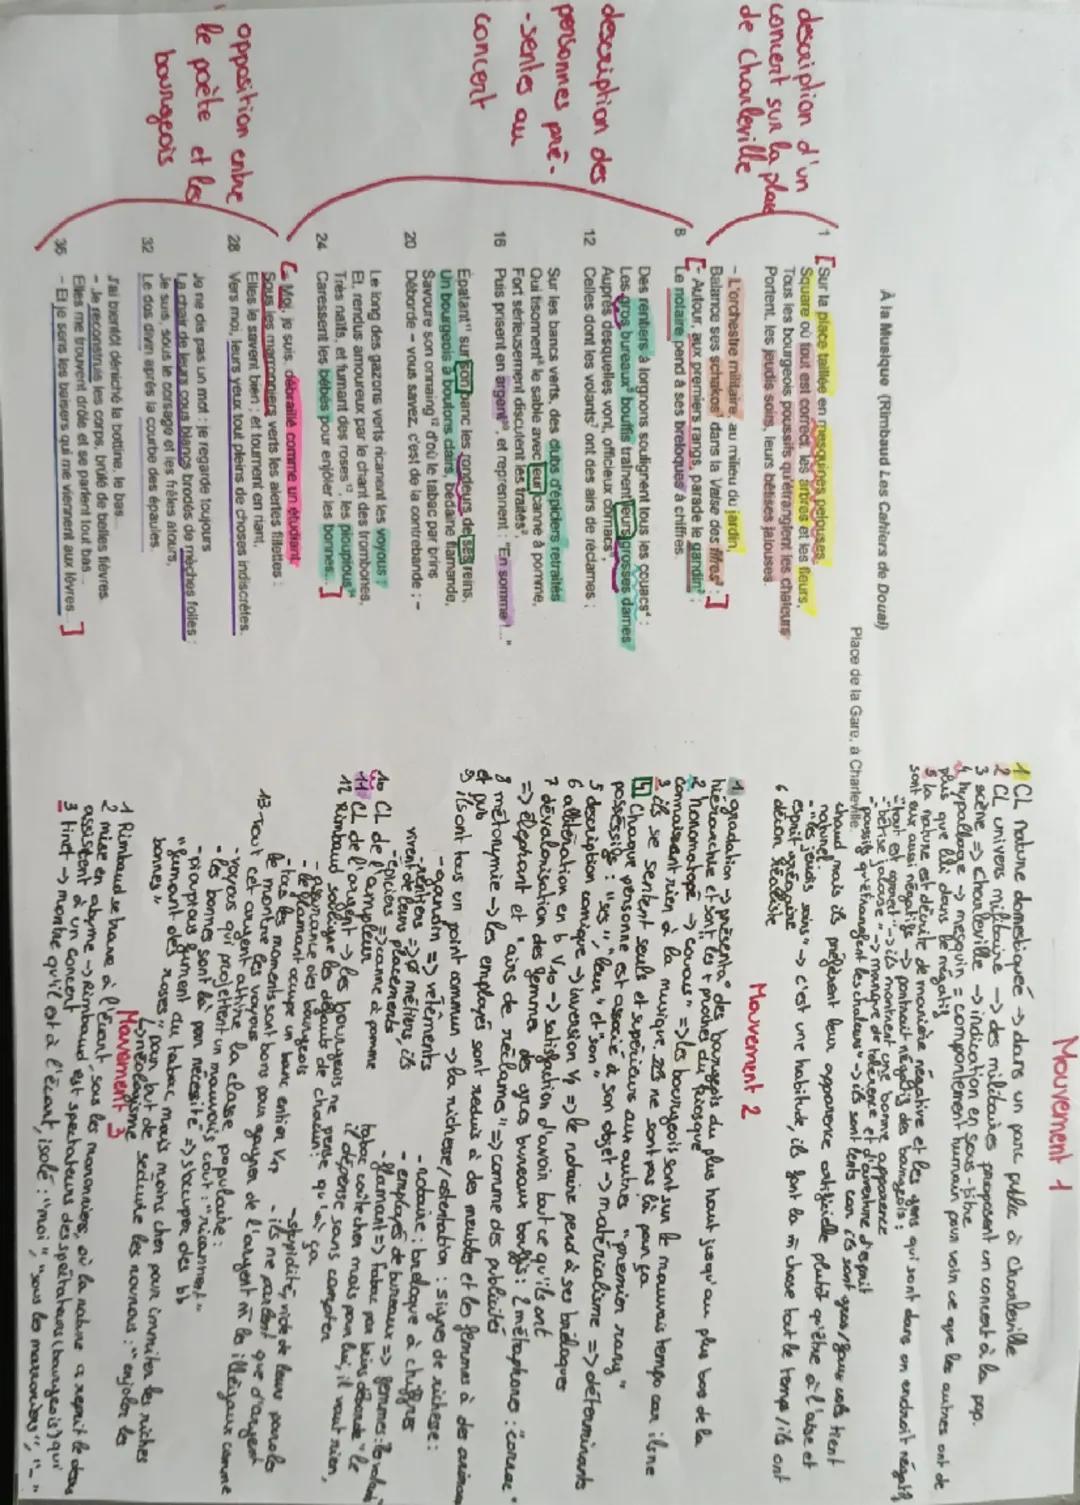 À la Musique (Rimbaud Les Cahiers de Douai)
Place de la Gare, à Charleville.
1 [Sur la place taillée en mesquines pelouses,
Square où tout est correct, les arbres et les fleurs,
Tous les bourgeois poussifs qu'étranglent les chaleurs
Portent, les jeudis soirs, leurs bêtises jalouses.
- L'orchestre militaire, au milieu du jardin,
Balance ses schakos dans la Valse des fifres : ]
[- Autour, aux premiers rangs, parade le gandin ;
8 Le notaire pend à ses breloques à chiffres.
Des rentiers à lorgnons soulignent tous les couacs :
Les gros bureaux bouffis traînent leurs grosses dames
Auprès desquelles vont, officieux cornacs,
12 Celles dont les volants ont des airs de réclames ;
Sur les bancs verts, des clubs d'épiciers retraités
Qui tisonnent le sable avec leur canne à pomme,
Fort sérieusement discutent les traités,
16 Puis prisent en argent, et reprennent : "En somme !..."
Épatant sur son banc les rondeurs de ses reins,
Un bourgeois à boutons clairs, bedaine flamande,
Savoure son onnaing d'où le tabac par brins
20 Déborde - vous savez, c'est de la contrebande ; -
Le long des gazons verts ricanent les voyous ;
Et, rendus amoureux par le chant des trombones,
Très naïfs, et fumant des roses, les pioupious
24 Caressent les bébés pour enjôler les bonnes... ]
[- Moi, je suis, débraillé comme un étudiant
Sous les marronniers verts les alertes fillettes :
Elles le savent bien ; et tournent en riant,
28 Vers moi, leurs yeux tout pleins de choses indiscrètes.
Je ne dis pas un mot : je regarde toujours
La chair de leurs cous blancs brodés de mèches folles :
Je suis, sous le corsage et les frêles atours,
32 Le dos divin après la courbe des épaules.
J'ai bientôt déniché la bottine, le bas...
- Je reconstruis les corps, brûlé de belles fièvres.
Elles me trouvent drôle et se parlent tout bas...
36 - Et je sens les baisers qui me viennent aux lèvres... ]
description d'un
concert sur la place
de Charleville
description des
personnes pré-
-sentes au
concert
opposition entre
le poète et les
bourgeois
Mouvement 1
1 CL nature domestiquée -> dans un parc public à Charleville
2 CL univers militaire -> des militaires proposent un concert à la pop.
3 scène => Charleville -> indication en sous-titre
4 hypallage -> mesquin = comportement humain pour voir ce que les autres ont de
plus que lui dans le négatif
5 la nature est décrite de manière négative et les gens qui sont dans un endroit négatif
sont eux aussi négatifs -> portrait négatif des bourgeois :
-"tout est correct" -> ils montrent une bonne apparence
-"bêtise jalouse" -> manque de tolérance et d'ouverture d'esprit
-"poussifs qu'étranglent les chaleurs" -> ils sont lents car ils sont gros/faux cols tient
chaud mais ils préfèrent leur apparence artificielle plutôt qu'être à l'aise et
naturel
-"les jeudis soirs" -> c'est une habitude, ils font la m̄ chose tout le temps / ils ont
esprit grégaire
Mouvement 2
1 gradation -> présenta° des bourgeois du plus haut jusqu'au plus bas de la
hiérarchie et sont les + proches du kiosque
2 homonatopé -> "couacs" => les bourgeois sont sur le mauvais temps car ils ne
connaissent rien à la musique. Ils ne sont pas là pour ça
3 ils se sentent seuls et supérieurs aux autres "premier rang"
4 Chaque personne est associé à son objet -> matérialisme => déterminants
possessifs : "ses", "leur" et "son"
5 description comique -> inversion V8 => le notaire pend à ses breloques
6 allitération en b V10 -> satisfaction d'avoir tout ce qu'ils ont
7 dévalorisation des femmes des gros bureaux bouffis : 2 métaphores : "cornac"
=> éléphant et "airs de réclames" => comme des publicités
8 métonymie -> les employés sont réduis à des meubles et les femmes à des
et pub
9 ils ont tous un point commun -> la richesse/ostentation : signes de richesse :
- gandin => vêtements
- notaire : breloque à chiffres
- rentiers => Ø métiers, ils
vivent de leurs placements
- employés de bureaux => femmes :
- épiciers => canne à pomme
- flamant => tabac par brins déborde "le
tabac coûte cher mais pour lui, il vaut rien,
il dépense sans compter
10 CL de l'ampleur
11 CL de l'argent -> les bourgeois ne pense qu'à ça
12 Rimbaud souligne les défauts de chacun :
- apparance des bourgeois
- stupidité, vide de leurs paroles
- le flamant occupe un banc entier V17
- ils ne parlent que d'argent
- ts les moments sont bons pour gagner de l'argent m̄ les illégaux comme
le montre les voyous
13 - Tout cet argent attire la classe populaire :
- voyous qui projettent un mauvais coup : "ricannent"
- les bonnes sont là par nécessité => s'occuper des bb
- pioupious fument du tabac mais moins cher pour immiter les riches
"fumant des roses" pour but de séduire les nounous : "enjoler les
bonnes"
↳ néologisme
Mouvement 3
1 Rimbaud se trouve à l'écart, sous les marronniers, où la nature a reprit le dessus
2 mise en abyme -> Rimbaud est spectateurs des spectateurs (bourgeois) qui
assistent à un concert
3 tiret -> montre qu'il est à l'écart, isolé : "moi", "sous les marroniers", "-"